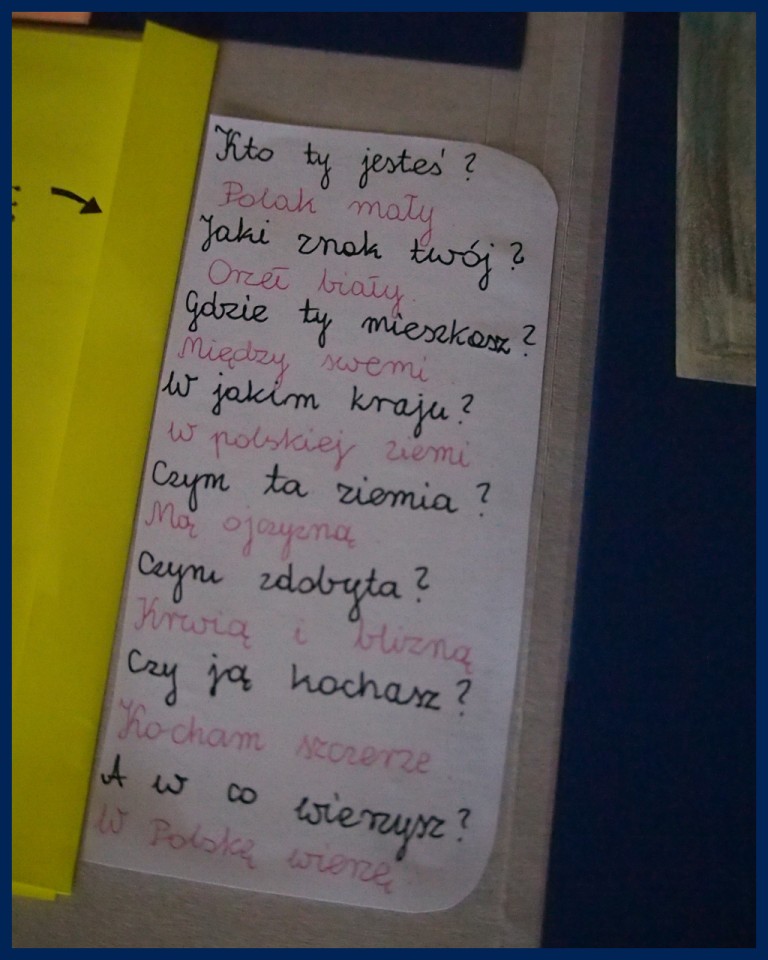 Kto ty jesteś?
Polak mały
Jaki znak twój?
Orzeł biały.
Gdzie ty mieszkasz?
Między swemi.
W jakim kraju?
W polskiej ziemi
Czym ta ziemia?
Mą ojczyzną
Czym zdobyta?
Krwią i blizną
Czy ją kochasz?
Kocham szczerze.
A w co wierzysz?
W Polskę wierzę.